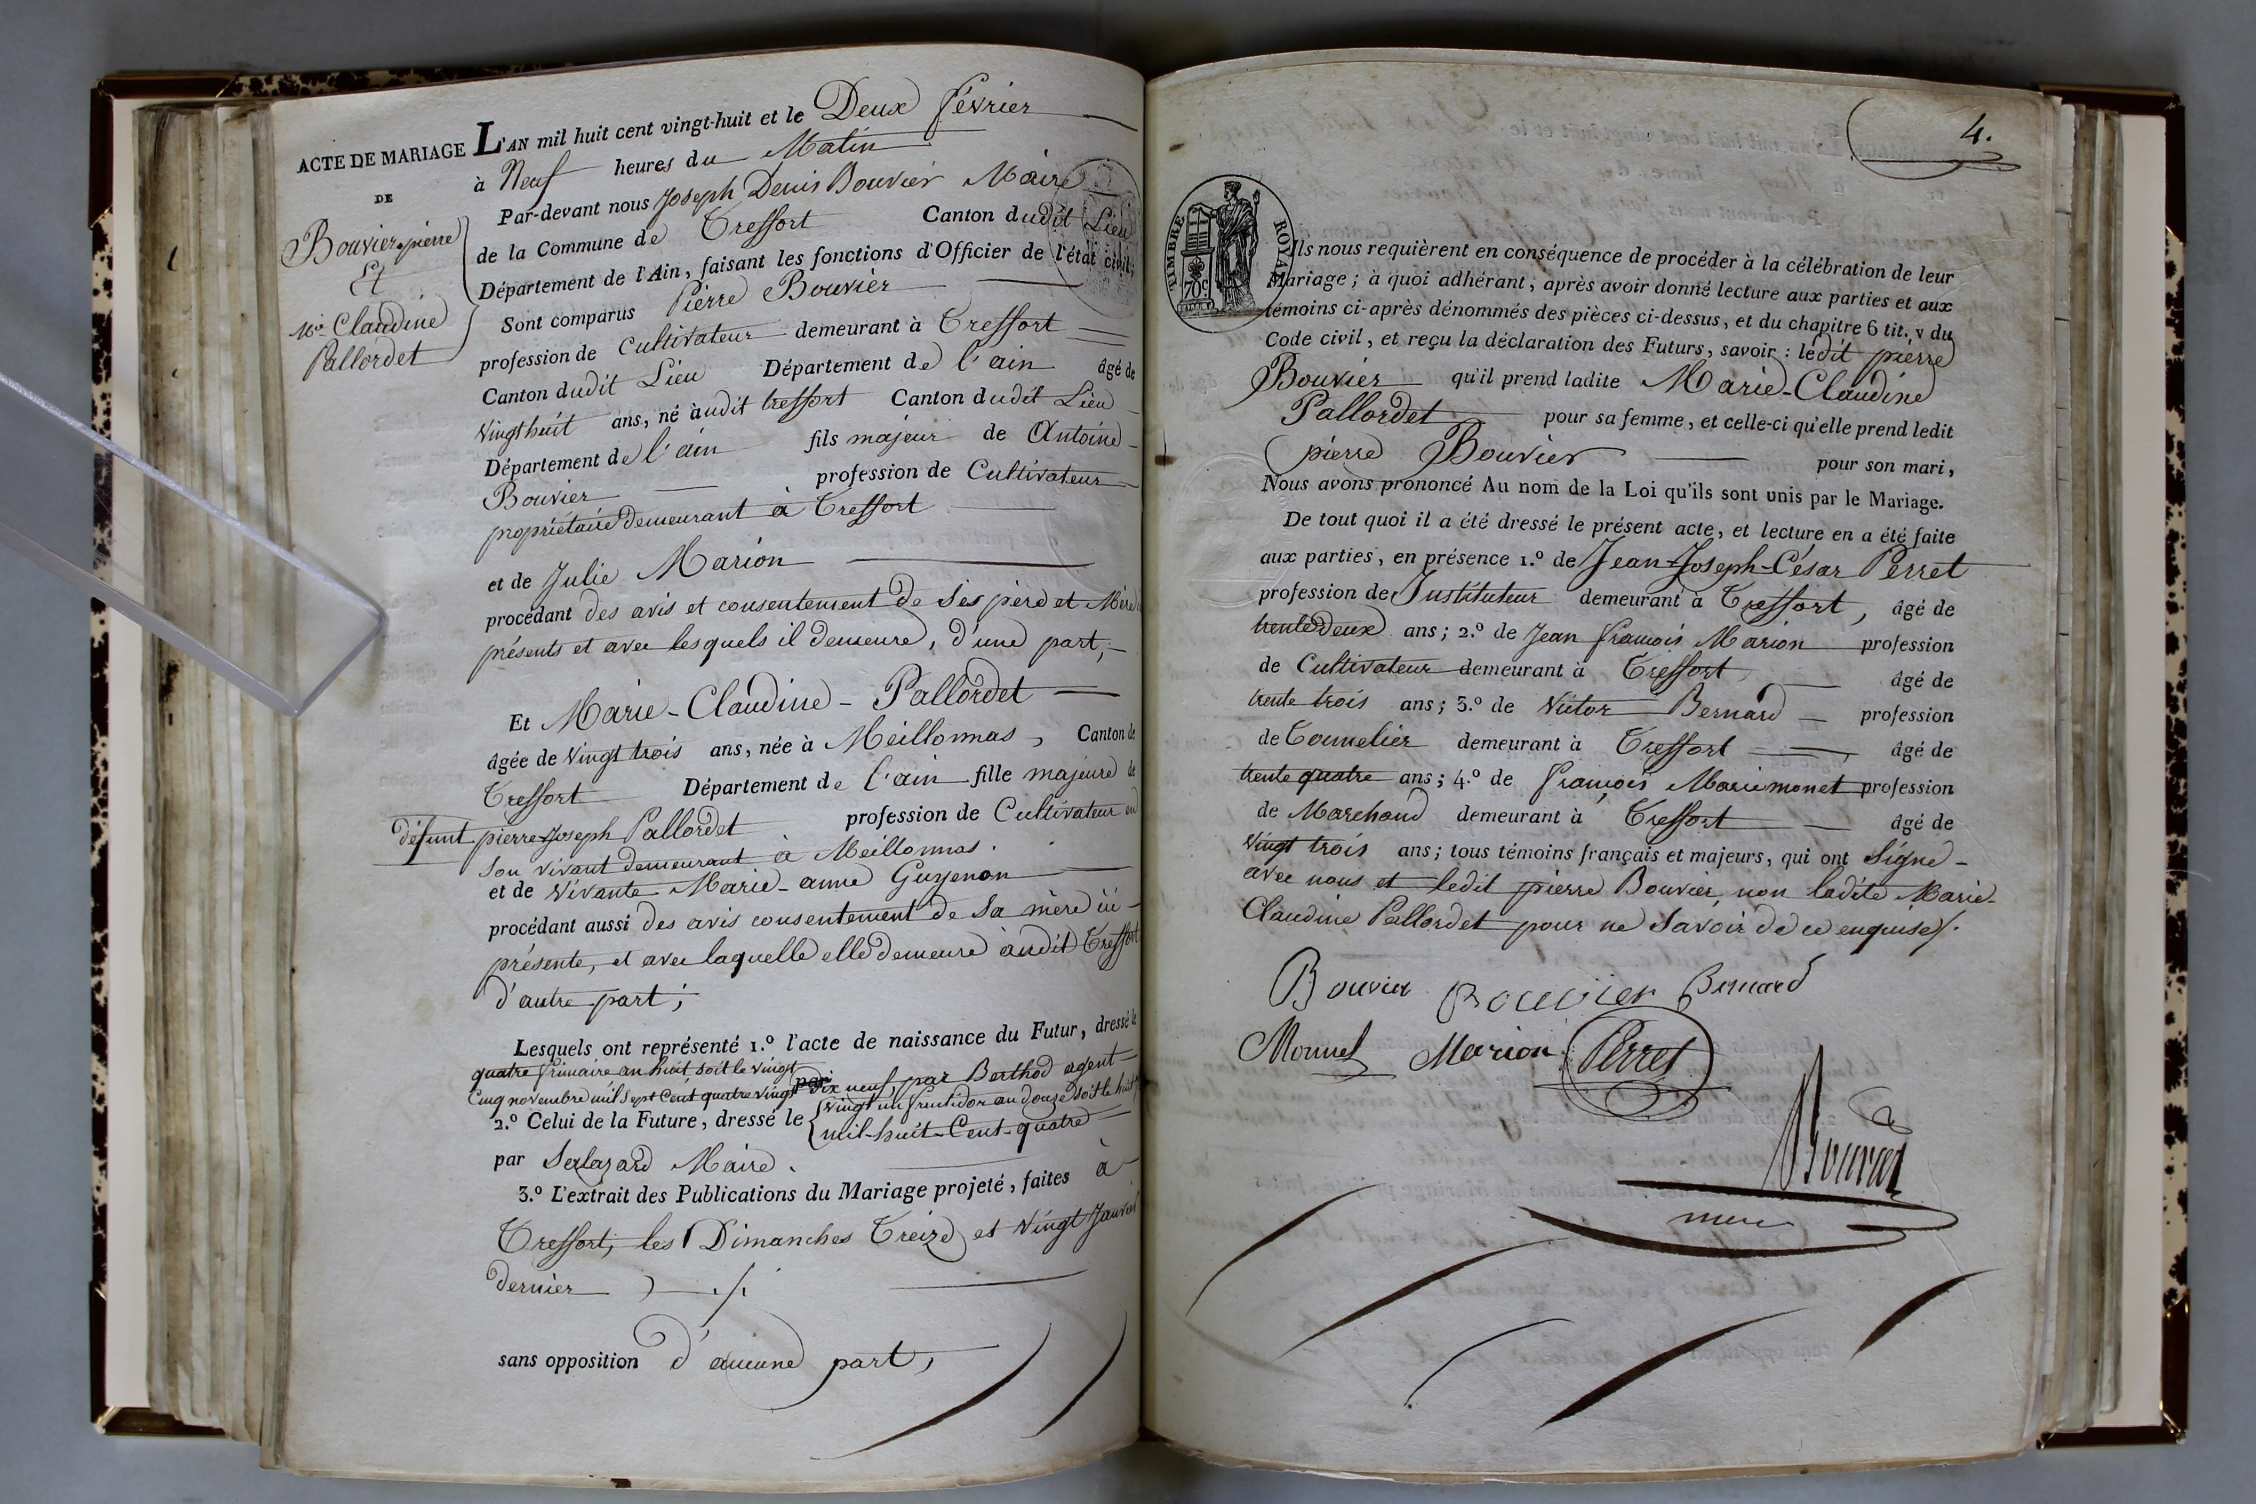 ACTE DE MARIAGE
DE
Bouvier pierre
Et
Mie Claudine
Pallordet
L'AN mil huit cent vingt-huit et le Deux février
à Neuf heures du Matin
Par-devant nous Joseph Denis Bouvier Maire
de la Commune de Treffort Canton dudit Lieu
Département de l'Ain, faisant les fonctions d'Officier de l'état civil,
Sont comparus Pierre Bouvier
profession de Cultivateur demeurant à Treffort
Canton dudit Lieu Département de l'ain âgé de
vingt huit ans, né àudit treffort Canton dudit Lieu
Département de l'ain fils majeur de Antoine
Bouvier profession de Cultivateur
propriétaire demeurant à Treffort
et de Julie Marion
procédant des avis et consentement de ses père et Mère
présents et avec lesquels il demeure, d'une part,
Et Marie-Claudine-Pallordet
âgée de vingt trois ans, née à Meillonnas, Canton de
Treffort Département de l'ain fille majeure de
défunt pierre Joseph Pallordet profession de Cultivateur en
Son vivant demeurant à Meillonnas.
et de vivante Marie-anne Guyenon
procédant aussi des avis consentement de sa mère ici
présente, et avec laquelle elle demeure àudit Treffort
d'autre part;
Lesquels ont représenté 1.º l'acte de naissance du Futur, dressé le
quatre frimaire an huit soit le vingt
Cinq novembre mil sept cent quatre vingt dix neuf, par Berthod agent
2.º Celui de la Future, dressé le vingt un fructidor an douze soit le huit
mil-huit-Cent-quatre
par Maire.
3.º L'extrait des Publications du Mariage projeté, faites à
Treffort, les Dimanches Treize et vingt Janvier
dernier
sans opposition d'aucune part,
4.
TIMBRE ROYAL
70c
Ils nous requièrent en conséquence de procéder à la célébration de leur
Mariage; à quoi adhérant, après avoir donné lecture aux parties et aux
témoins ci-après dénommés des pièces ci-dessus, et du chapitre 6 tit. v du
Code civil, et reçu la déclaration des Futurs, savoir: ledit pierre
Bouvier qu'il prend ladite Marie-Claudine
Pallordet pour sa femme, et celle-ci qu'elle prend ledit
pierre Bouvier pour son mari,
Nous avons prononcé Au nom de la Loi qu'ils sont unis par le Mariage.
De tout quoi il a été dressé le présent acte, et lecture en a été faite
aux parties, en présence 1.º de Jean-Joseph-César Perret
profession de Instituteur demeurant à Treffort, âgé de
trente Deux ans; 2.º de Jean françois Marion profession
de Cultivateur demeurant à Treffort âgé de
trente trois ans; 3.º de Victor Bernard profession
de Tonnelier demeurant à Treffort, âgé de
trente quatre ans; 4.º de françois Marie monet profession
de Marchand demeurant à Treffort âgé de
vingt trois ans; tous témoins français et majeurs, qui ont signé
avec nous et ledit pierre Bouvier, non ladite Marie-
Claudine Pallordet pour ne savoir de ce enquise/.
Bouvier Bouvier Bernard
Monnet Marion Perret
Bouvier